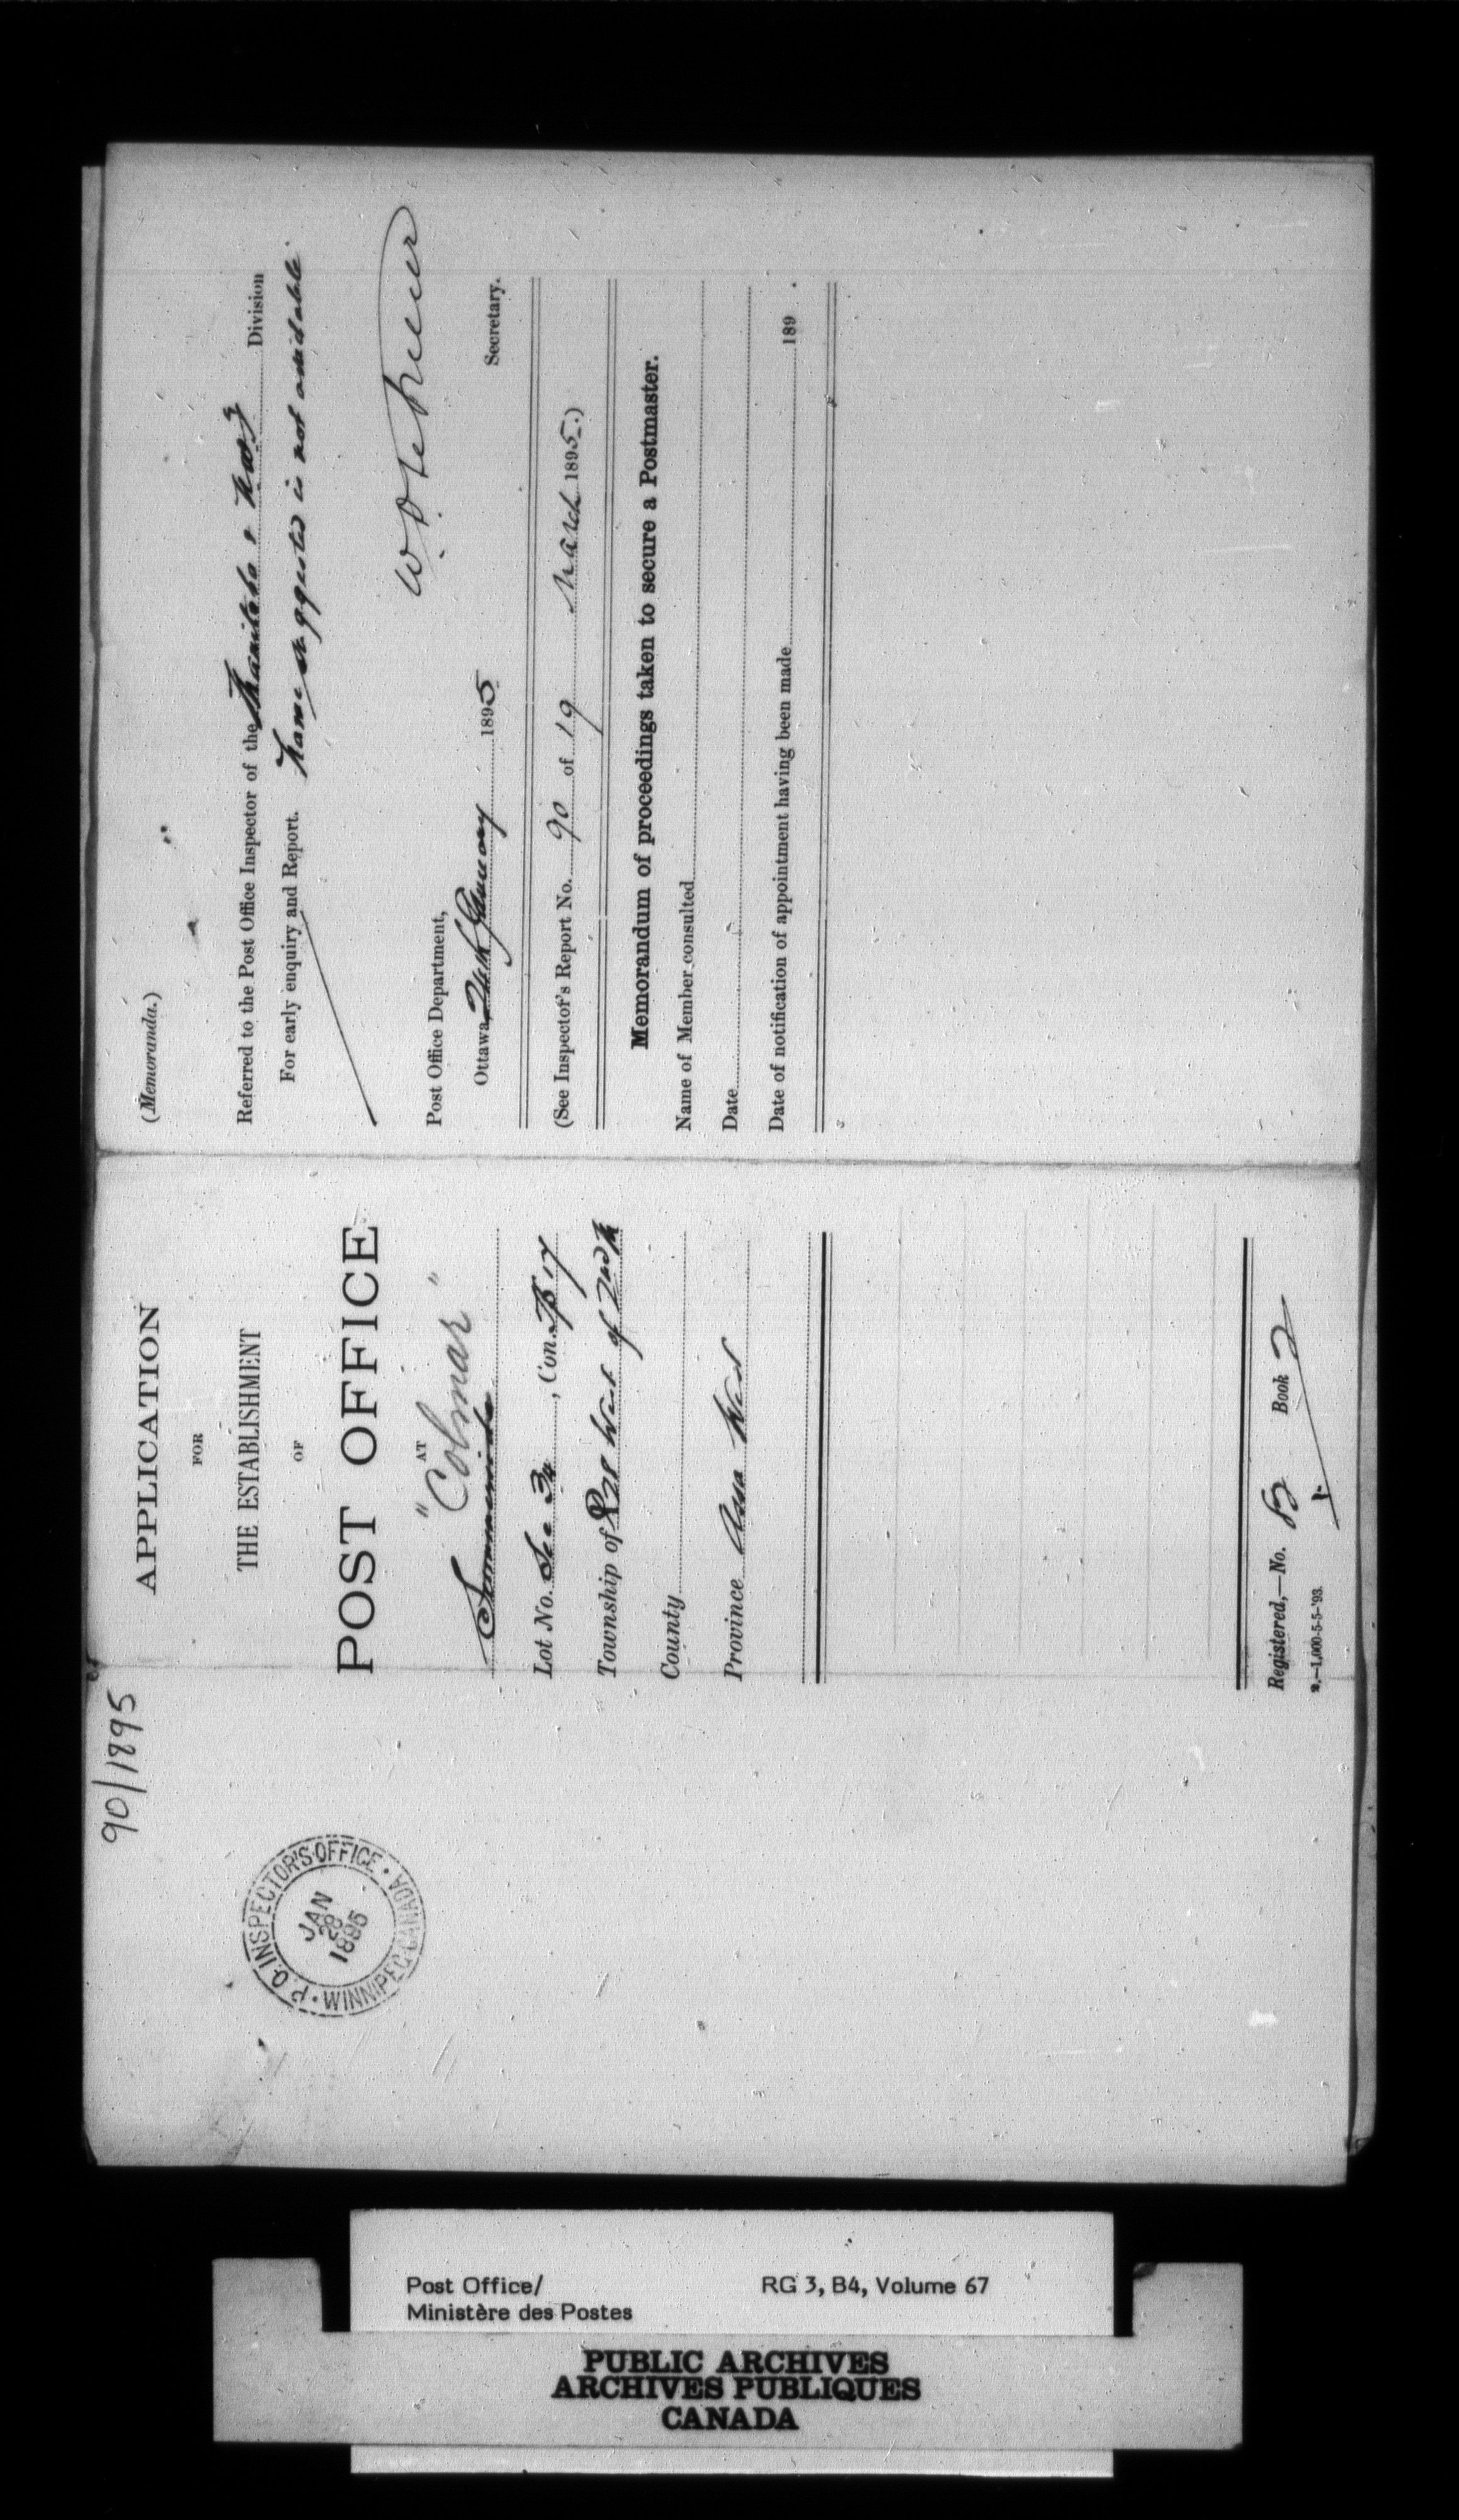 90/1895
P.O. INSPECTOR'S OFFICE • WINNIPEG CANADA
JAN
28
1895
APPLICATION
FOR
THE ESTABLISHMENT
OF
POST OFFICE
AT
"Colmar"
Lot No. Sec 34, Con. Tp 17
Township of R 28 West of 2nd M
County
Province Assa West
Registered,—No. Book 2
2.—1,000-5-5-'93.
(Memoranda.)
Referred to the Post Office Inspector of the Manitoba & Division
For early enquiry and Report. Name suggested is not available
Post Office Department,
Ottawa, January 1895
Secretary.
(See Inspector's Report No. 90 of 19 March 1895.)
Memorandum of proceedings taken to secure a Postmaster.
Name of Member consulted
Date
Date of notification of appointment having been made 189 .
Post Office/
Ministère des Postes
RG 3, B4, Volume 67
PUBLIC ARCHIVES
ARCHIVES PUBLIQUES
CANADA